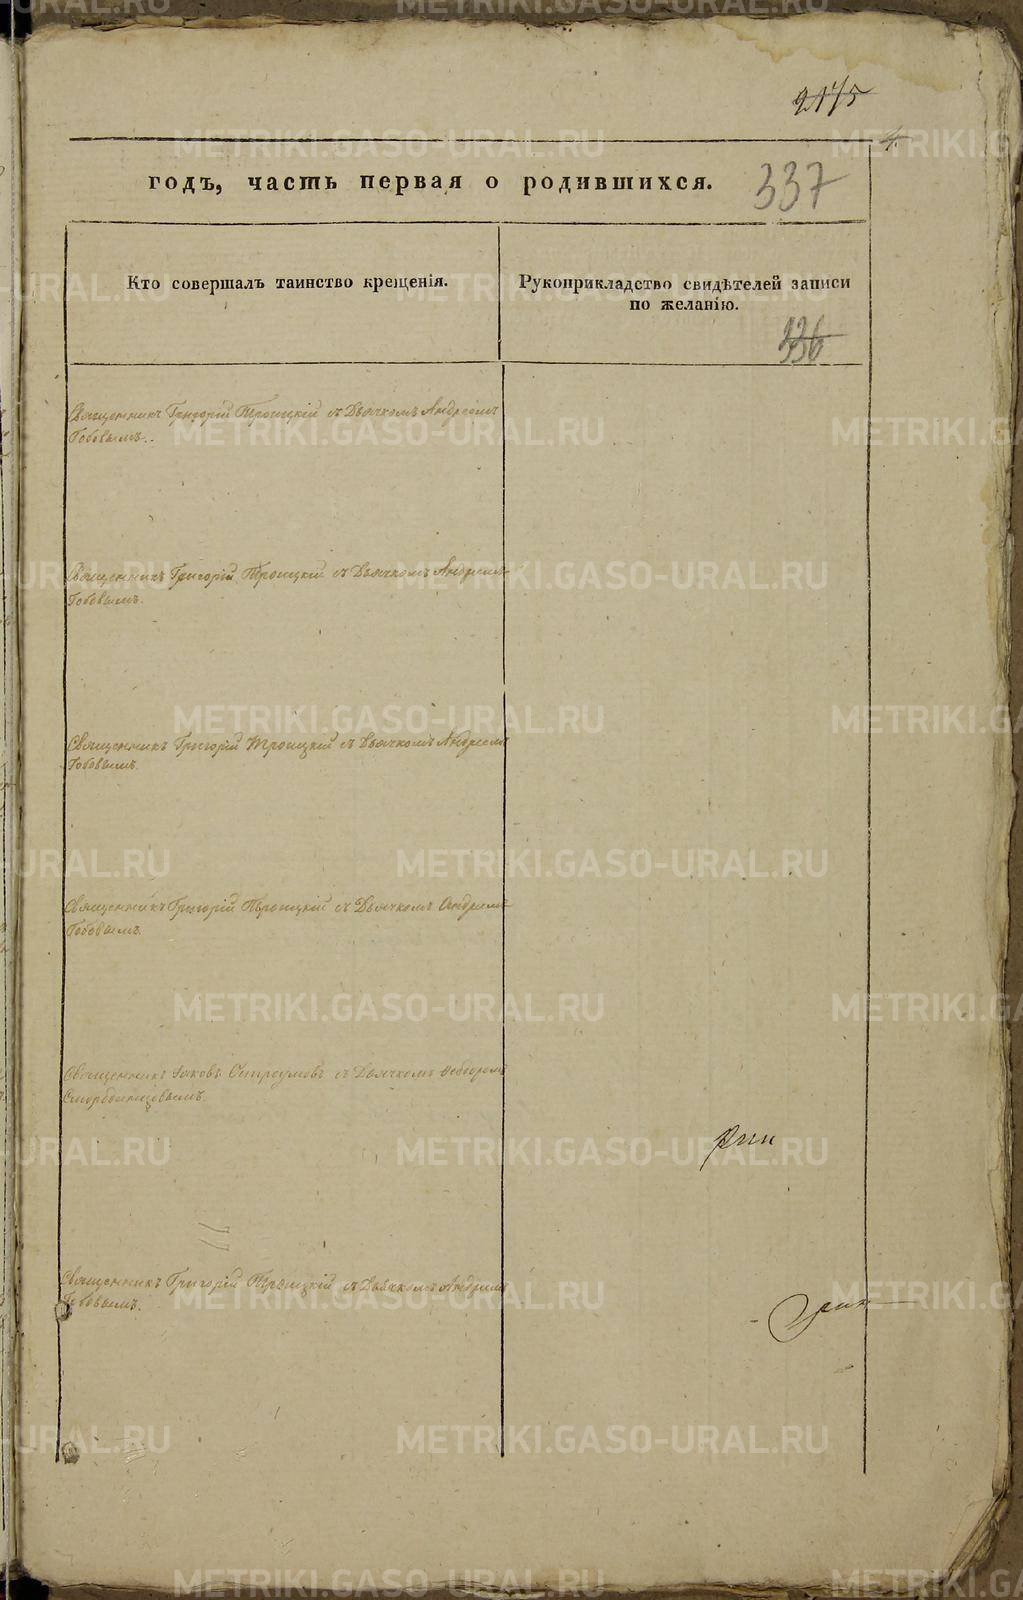 2175
4.
годъ, часть первая о родившихся.
337
Кто совершалъ таинство крещенія.
Рукоприкладство свидѣтелей записи
по желанію.
336
Священникъ Григорій Троицкій съ Дьячкомъ Андреемъ
Гобовымъ.
Священникъ Григорій Троицкій съ Дьячкомъ Андреемъ
Гобовымъ.
Священникъ Григорій Троицкій съ Дьячкомъ Андреемъ
Гобовымъ.
Священникъ Григорій Троицкій съ Дьячкомъ Андреемъ
Гобовымъ.
Священникъ Іаковъ съ Дьячкомъ Ѳедоромъ
Смородинцовымъ.
Священникъ Григорій Троицкій съ Дьячкомъ Андреемъ
Гобовымъ.
METRIKI.GASO-URAL.RU